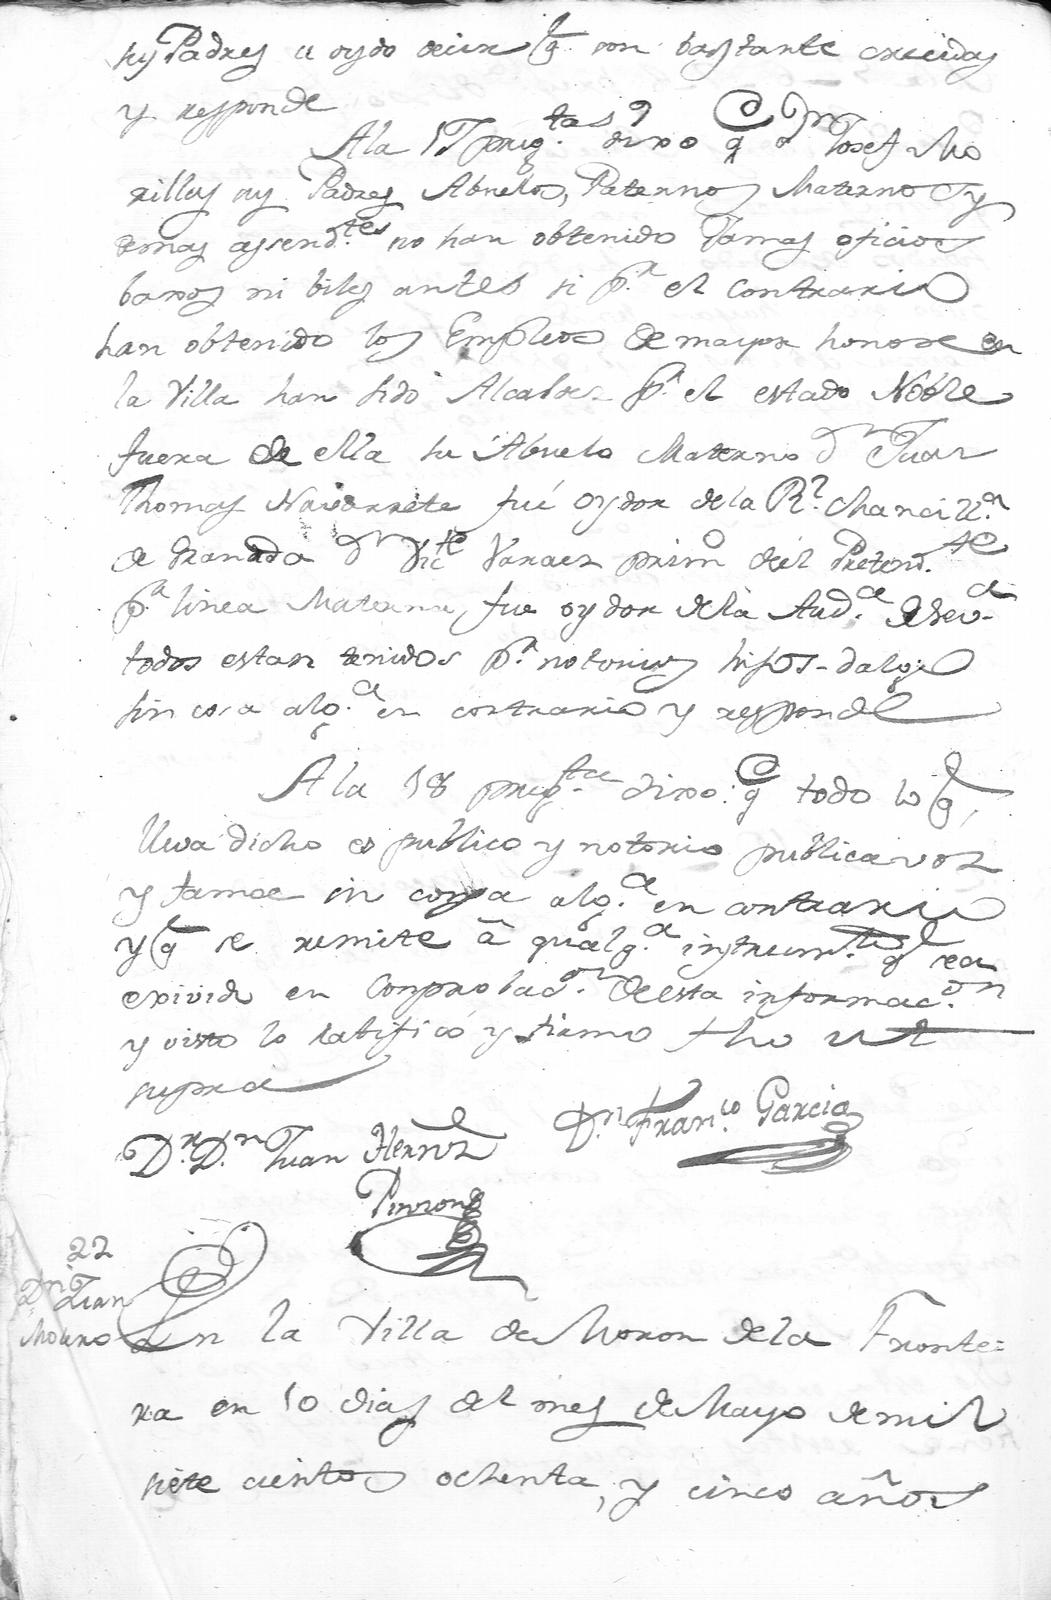 sus Padres a oydo decir q. son bastante crecidas
y responde
A la 17 preg.tas dixo q. d.n Josef Mo
rillas sus Padres Abuelos, Paternos Maternos y
demas asend.tes no han obtenido Jamas oficios
baxos ni biles antes si p.r el contrario
han obtenido los Empleos de mayor honor en
la Villa han sido Alcaldes p.r el estado Noble
fuera de ella su Abuelo Materno d.n Juan
Thomas Navarrete fué oydor de la R.l Chancill.a
de Granada d.n Vic.te primo del Pretend.te
p.r linea Materna, fue oydor de la Aud.a de Sev.a
todos estan tenidos p.r notorios hijos-dalgo
sin cosa alg.a en contrario y responde
A la 18 preg.ta dixo: q. todo lo q.
lleva dicho es publico y notorio publica voz
y fama sin cosa alg.a en contrario
y q. se remite á qualq.a instrum.to q. sea
exivido en Conprobac.on de esta informac.on
y visto lo ratificó y firmo fho ut
supra
D.r D.n Juan Hernz D.n Fran.co Garcia
Pinzon
22
D.n Juan
Moreno
En la Villa de Moron de la Fronte=
ra en 10 dias del mes de Mayo de mil
siete cientos ochenta, y cinco años